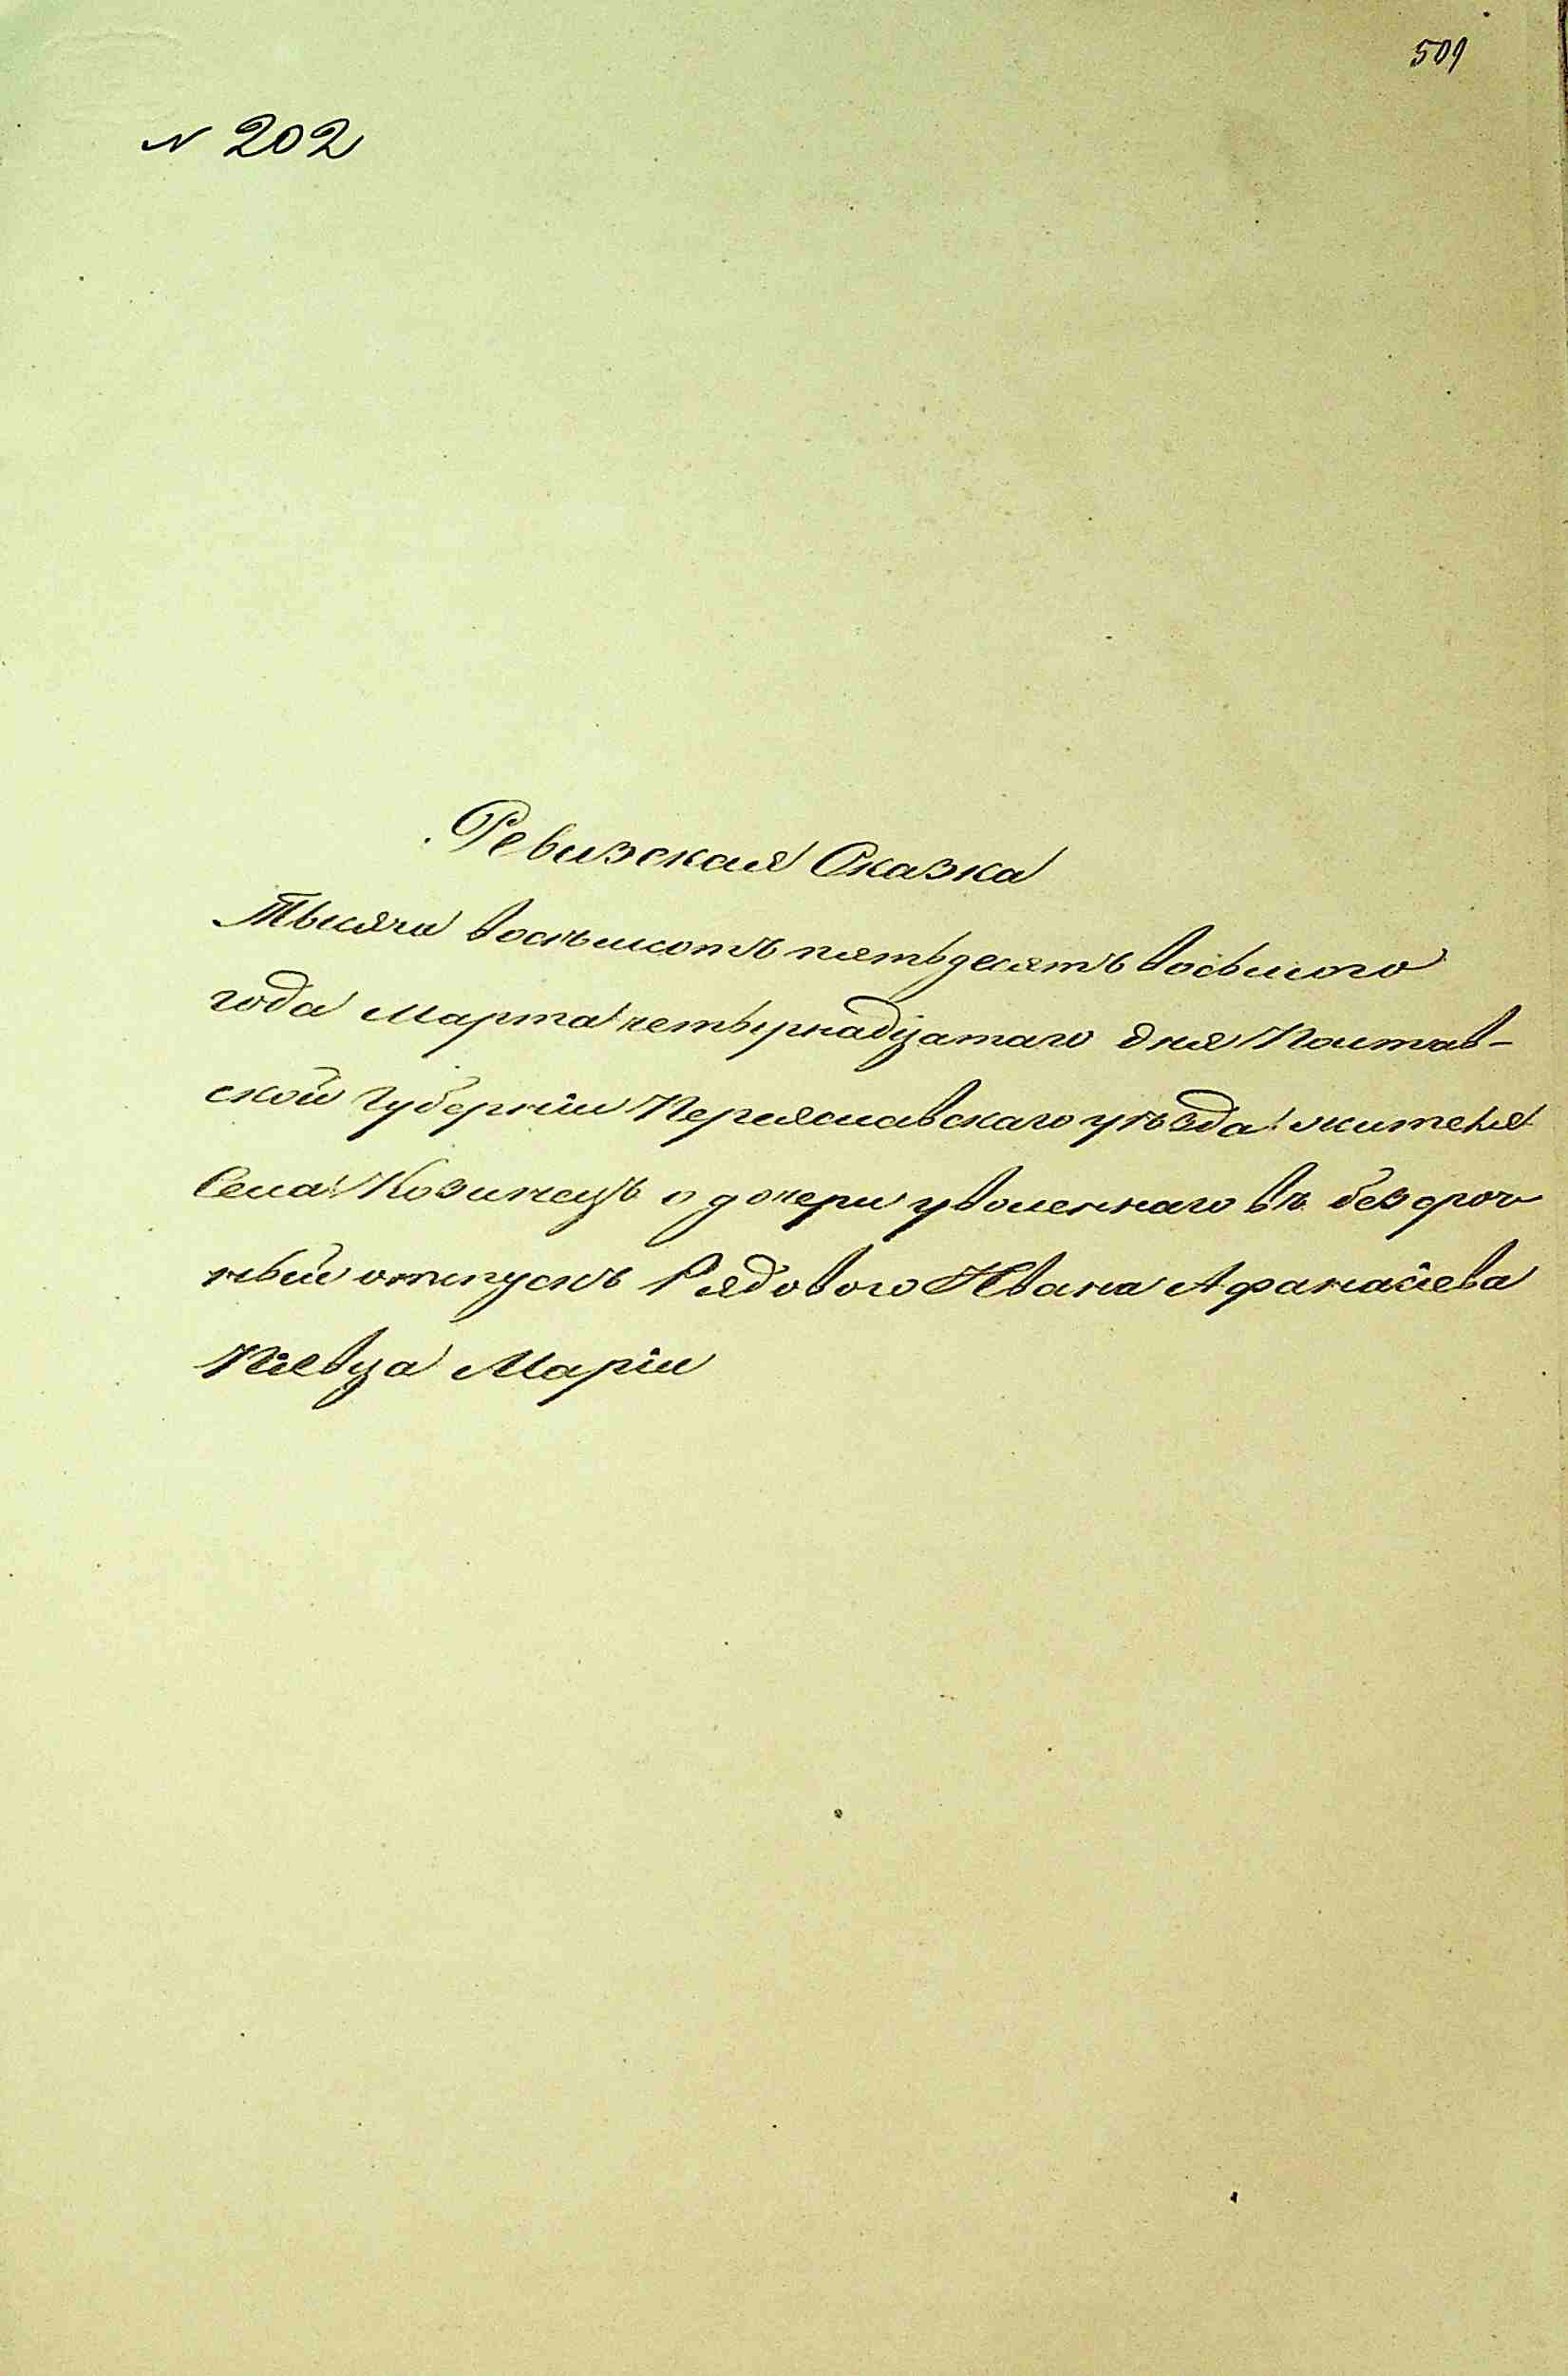 509
№ 202
Ревизская Сказка
Тысяча восемьсотъ пятьдесятъ восьмого
года Марта четырнадцатаго дня Полтав-
ской Губерніи Переяславскаго уѣзда жителя
Села Козинецъ о дочери уволеннаго въ безсроч-
ный отпускъ Рядового Ивана Афанасіева
Піевца Маріи